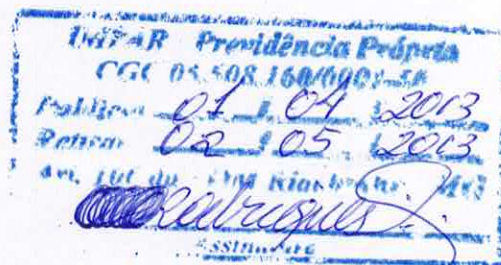 IMPAR Previdência Própria
CGC 05.508.160/0001-
Publicar 01 / 04 / 2013
Retirar 02 / 05 / 2013
Av.
Rodrigues
Assinatura